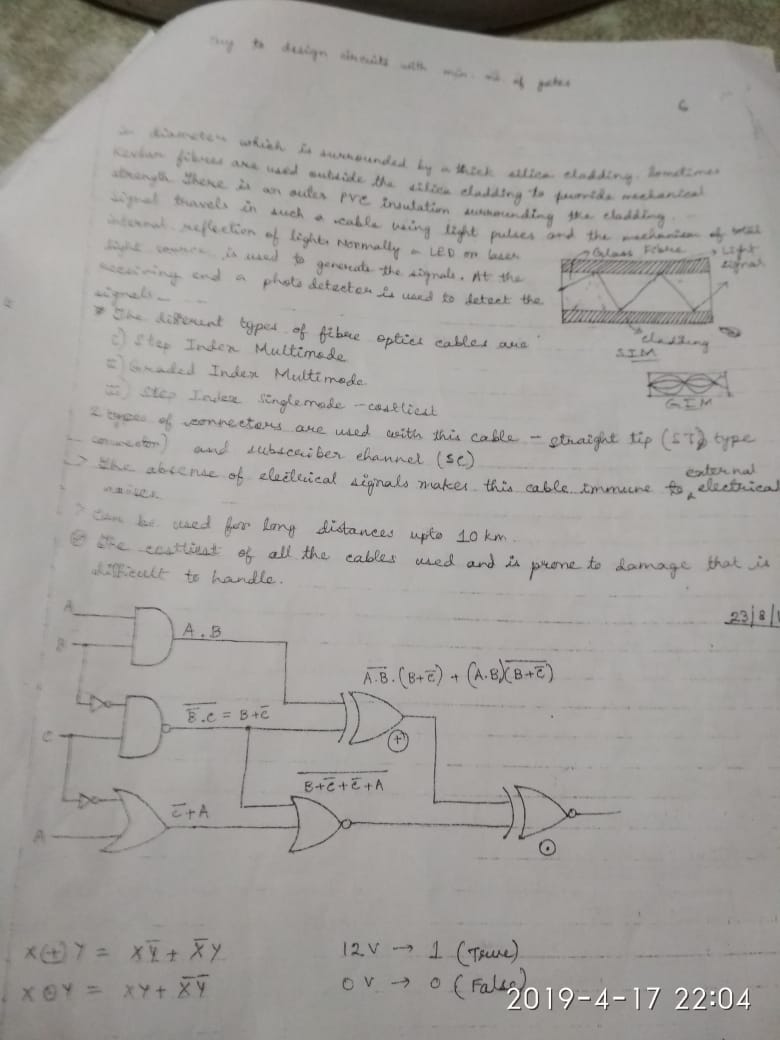 Try to design circuits with min. no. of gates
6
in diameter which is surrounded by a thick silica cladding. Sometimes
Kevlar fibres are used outside the silica cladding to provide mechanical
strength. There is an outer PVC insulation surrounding the cladding.
Signal travels in such a cable using light pulses and the mechanism of total
internal reflection of light. Normally a LED or laser
light source is used to generate the signals. At the
receiving end a photo detector is used to detect the
signals.
Glass Fibre
Light
signal
cladding
SIM
GIM
* The different types of fibre optics cables are
i) Step Index Multimode
ii) Graded Index Multimode
iii) Step Index Singlemode - costliest
2 types of connectors are used with this cable - straight tip (ST) type
connector) and subscriber channel (SC)
→ The absense of electrical signals makes this cable immune to external electrical
noises.
> Can be used for long distances upto 10 km.
The costliest of all the cables used and is prone to damage that is
difficult to handle.
23/8/1
A
B
A.B
A̅.̅B̅.(B+C̅) + (A.B)(B̅+̅C̅)
C
B̅.C = B+C̅
⊕
B+C̅+C̅+A
C̅+A
A
⊙
X⊕Y = XY̅ + X̅Y
X⊙Y = XY + X̅Y̅
12V → 1 (True)
0V → 0 (False)
2019-4-17 22:04